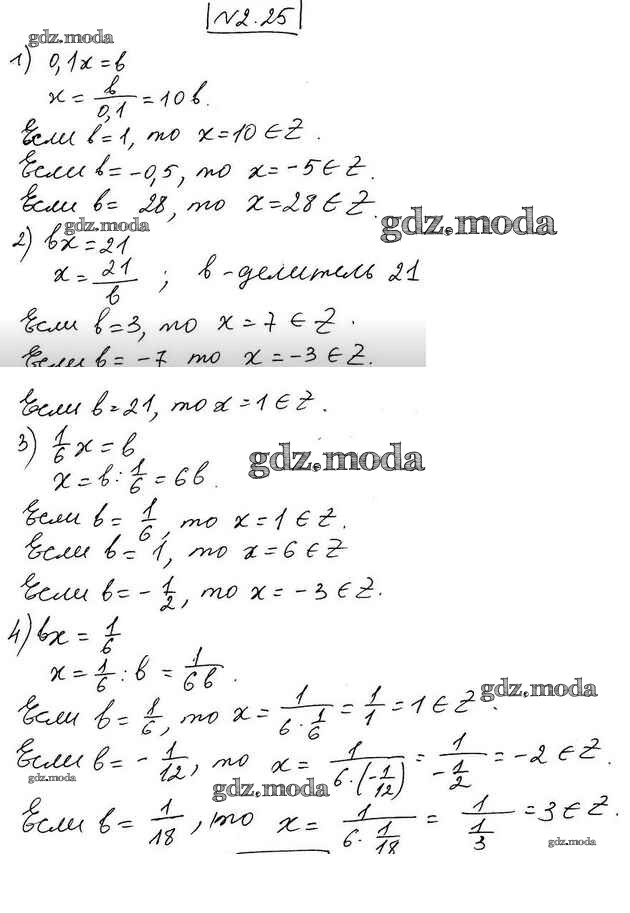 №2.25
gdz.moda
1) 0,1x=b
x = b/0,1 = 10b.
Если b=1, то x=10∈Z.
Если b=-0,5, то x=-5∈Z.
Если b= 28, то x=28∈Z.
gdz.moda
gdz.moda
2) bx=21
x = 21/b ; b - делитель 21
Если b=3, то x=7∈Z.
Если b= -7 то x=-3∈Z.
Если b=21, то x=1∈Z.
3) 1/6 x = b
gdz.moda
x = b : 1/6 = 6b.
Если b= 1/6, то x=1∈Z.
Если b= 1, то x=6∈Z
Если b= - 1/2, то x=-3∈Z.
4) bx = 1/6
x = 1/6 : b = 1/6b.
gdz.moda
Если b= 1/6, то x = 1/(6·1/6) = 1/1 = 1∈Z.
Если b= - 1/12, то x = 1/(6·(-1/12)) = 1/(-1/2) = -2∈Z.
gdz.moda
gdz.moda
Если b= 1/18, то x = 1/(6·1/18) = 1/(1/3) = 3∈Z.
gdz.moda